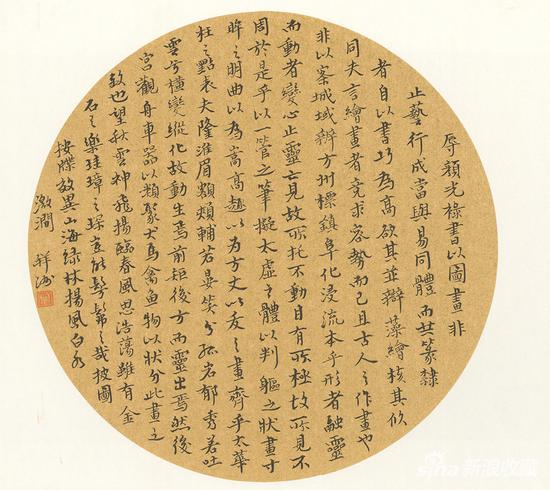 辱顏光祿書以圖畫非
止藝行成當與易同體而共篆隸
者自以書巧為高欲其並辯藻繪核其攸
同夫言繪畫者竟求容勢而已且古人之作畫也
非以案城域辨方州標鎮阜化浸流本乎形者融靈
而動者變心止靈亡見故所托不動目有所極故所見不
周於是乎以一管之筆擬太虛之體以判軀之狀畫寸
眸之明曲以為嵩高趣以為方丈以叐之畫齊乎太華
枉之點表夫隆準眉額頰輔若晏笑兮孤岩郁秀若吐
雲兮橫變縱化故動生焉前矩後方而靈出焉然後
宮觀舟車器以類聚犬馬禽魚物以狀分此畫之
致也望秋雲神飛揚臨春風思浩蕩雖有金
石之樂珪璋之琛豈能髣髴之哉披圖
按牒效異山海綠林揚風白水
激澗
sina 新浪收藏